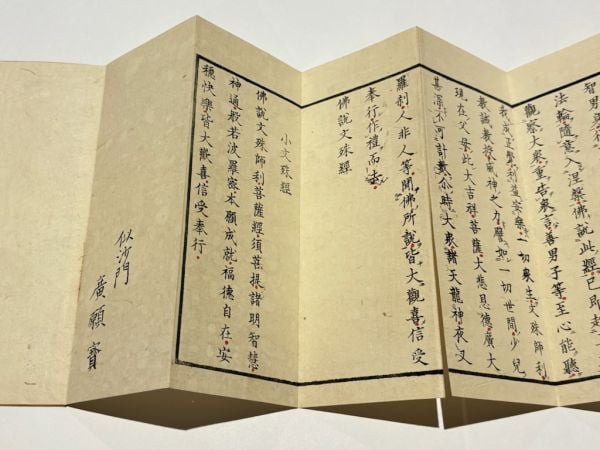 法輪隨意入涅槃佛說此經已即起
觀察大衆重告衆言善男子等至心能聽
我成正覺利益安樂一切衆生文殊師利
教誡教授威神之力譬如一切世間少兒
現在父母此大吉祥菩薩大悲恩德廣大
甚深不可計數尒時大衆諸天龍神夜叉
羅刹人非人等聞佛所說皆大觀喜信受
奉行作禮而去
佛說文殊經
小文殊經
佛說文殊師利菩薩經須菩提諸明智慧
神通般若波羅蜜本願成就福德自在安
穩快樂皆大歡喜信受奉行
似沙門
廣願賓